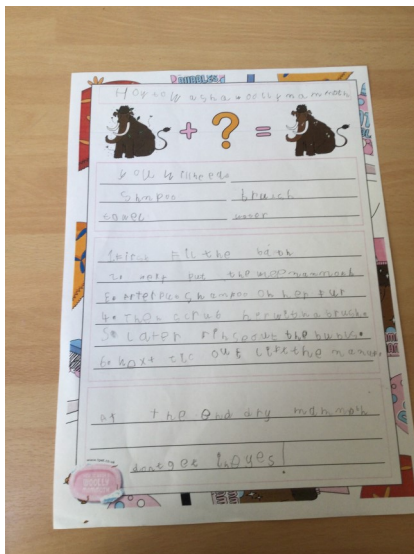 How to wash a woolly mammoth
+ ? =
you will need
Shmpoo brush
towel water
1. first Fil the bath
2. next put the mammoth
3. after PLo Shampoo on her fur
4. Then scrub her with a brush.
5. Later rinse out the bubls.
6. next out
at the end dry mammoth
dont get in eyes!